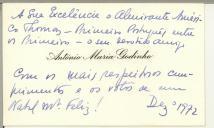 A Sua Excelência o Almirante Américo
Thomaz – Primeiro Português entre
os Primeiros – o seu
António Maria Godinho
Com os mais respeitosos cum-
primentos e os votos de um
Natal Mt. Feliz!
Dezº 1972